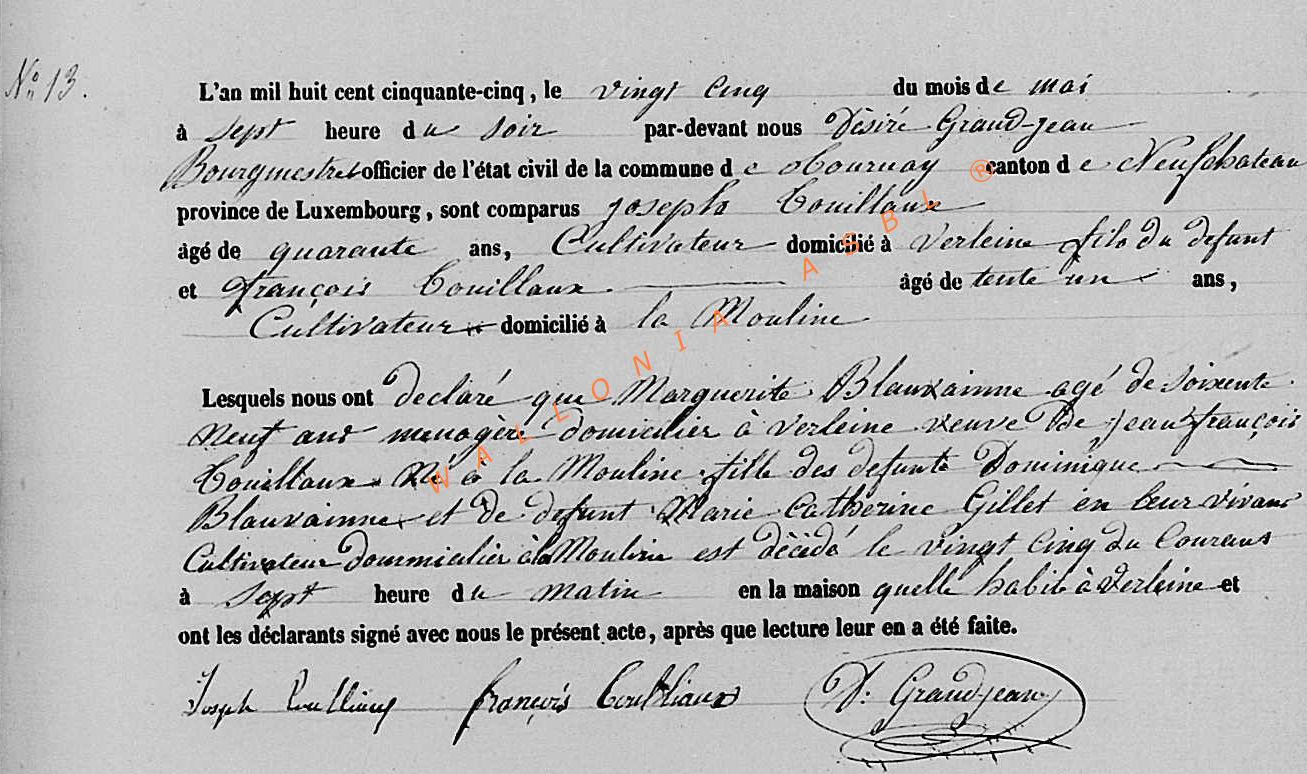 N° 13.
L'an mil huit cent cinquante-cinq, le vingt cinq du mois de mai
à sept heure du soir par-devant nous Désiré Grand-jean
Bourgmestre officier de l'état civil de la commune de Tournay canton de Neufchateau
province de Luxembourg, sont comparus joseph Touillaux
âgé de quarante ans, Cultivateur domicilié à Verleine fils du defunt
et françois Touillaux âgé de tente un ans,
Cultivateur domicilié à la Mouline
Lesquels nous ont declaré que Marguerite Blauxainne agé de soixente
Neuf ans menagère domicilier à Verleine veuve de jean françois
Touillaux Né à la Mouline fille des defunts Dominique
Blauxainne et de defunt Marie Catherine Gillet en leur vivant
Cultivateur dommicilier à la Mouline est décédé le vingt cinq du Courant
à sept heure du matin en la maison quelle habite à Verleine et
ont les déclarants signé avec nous le présent acte, après que lecture leur en a été faite.
Joseph françois D. Grand-jean
WALLONIA ASBL ®